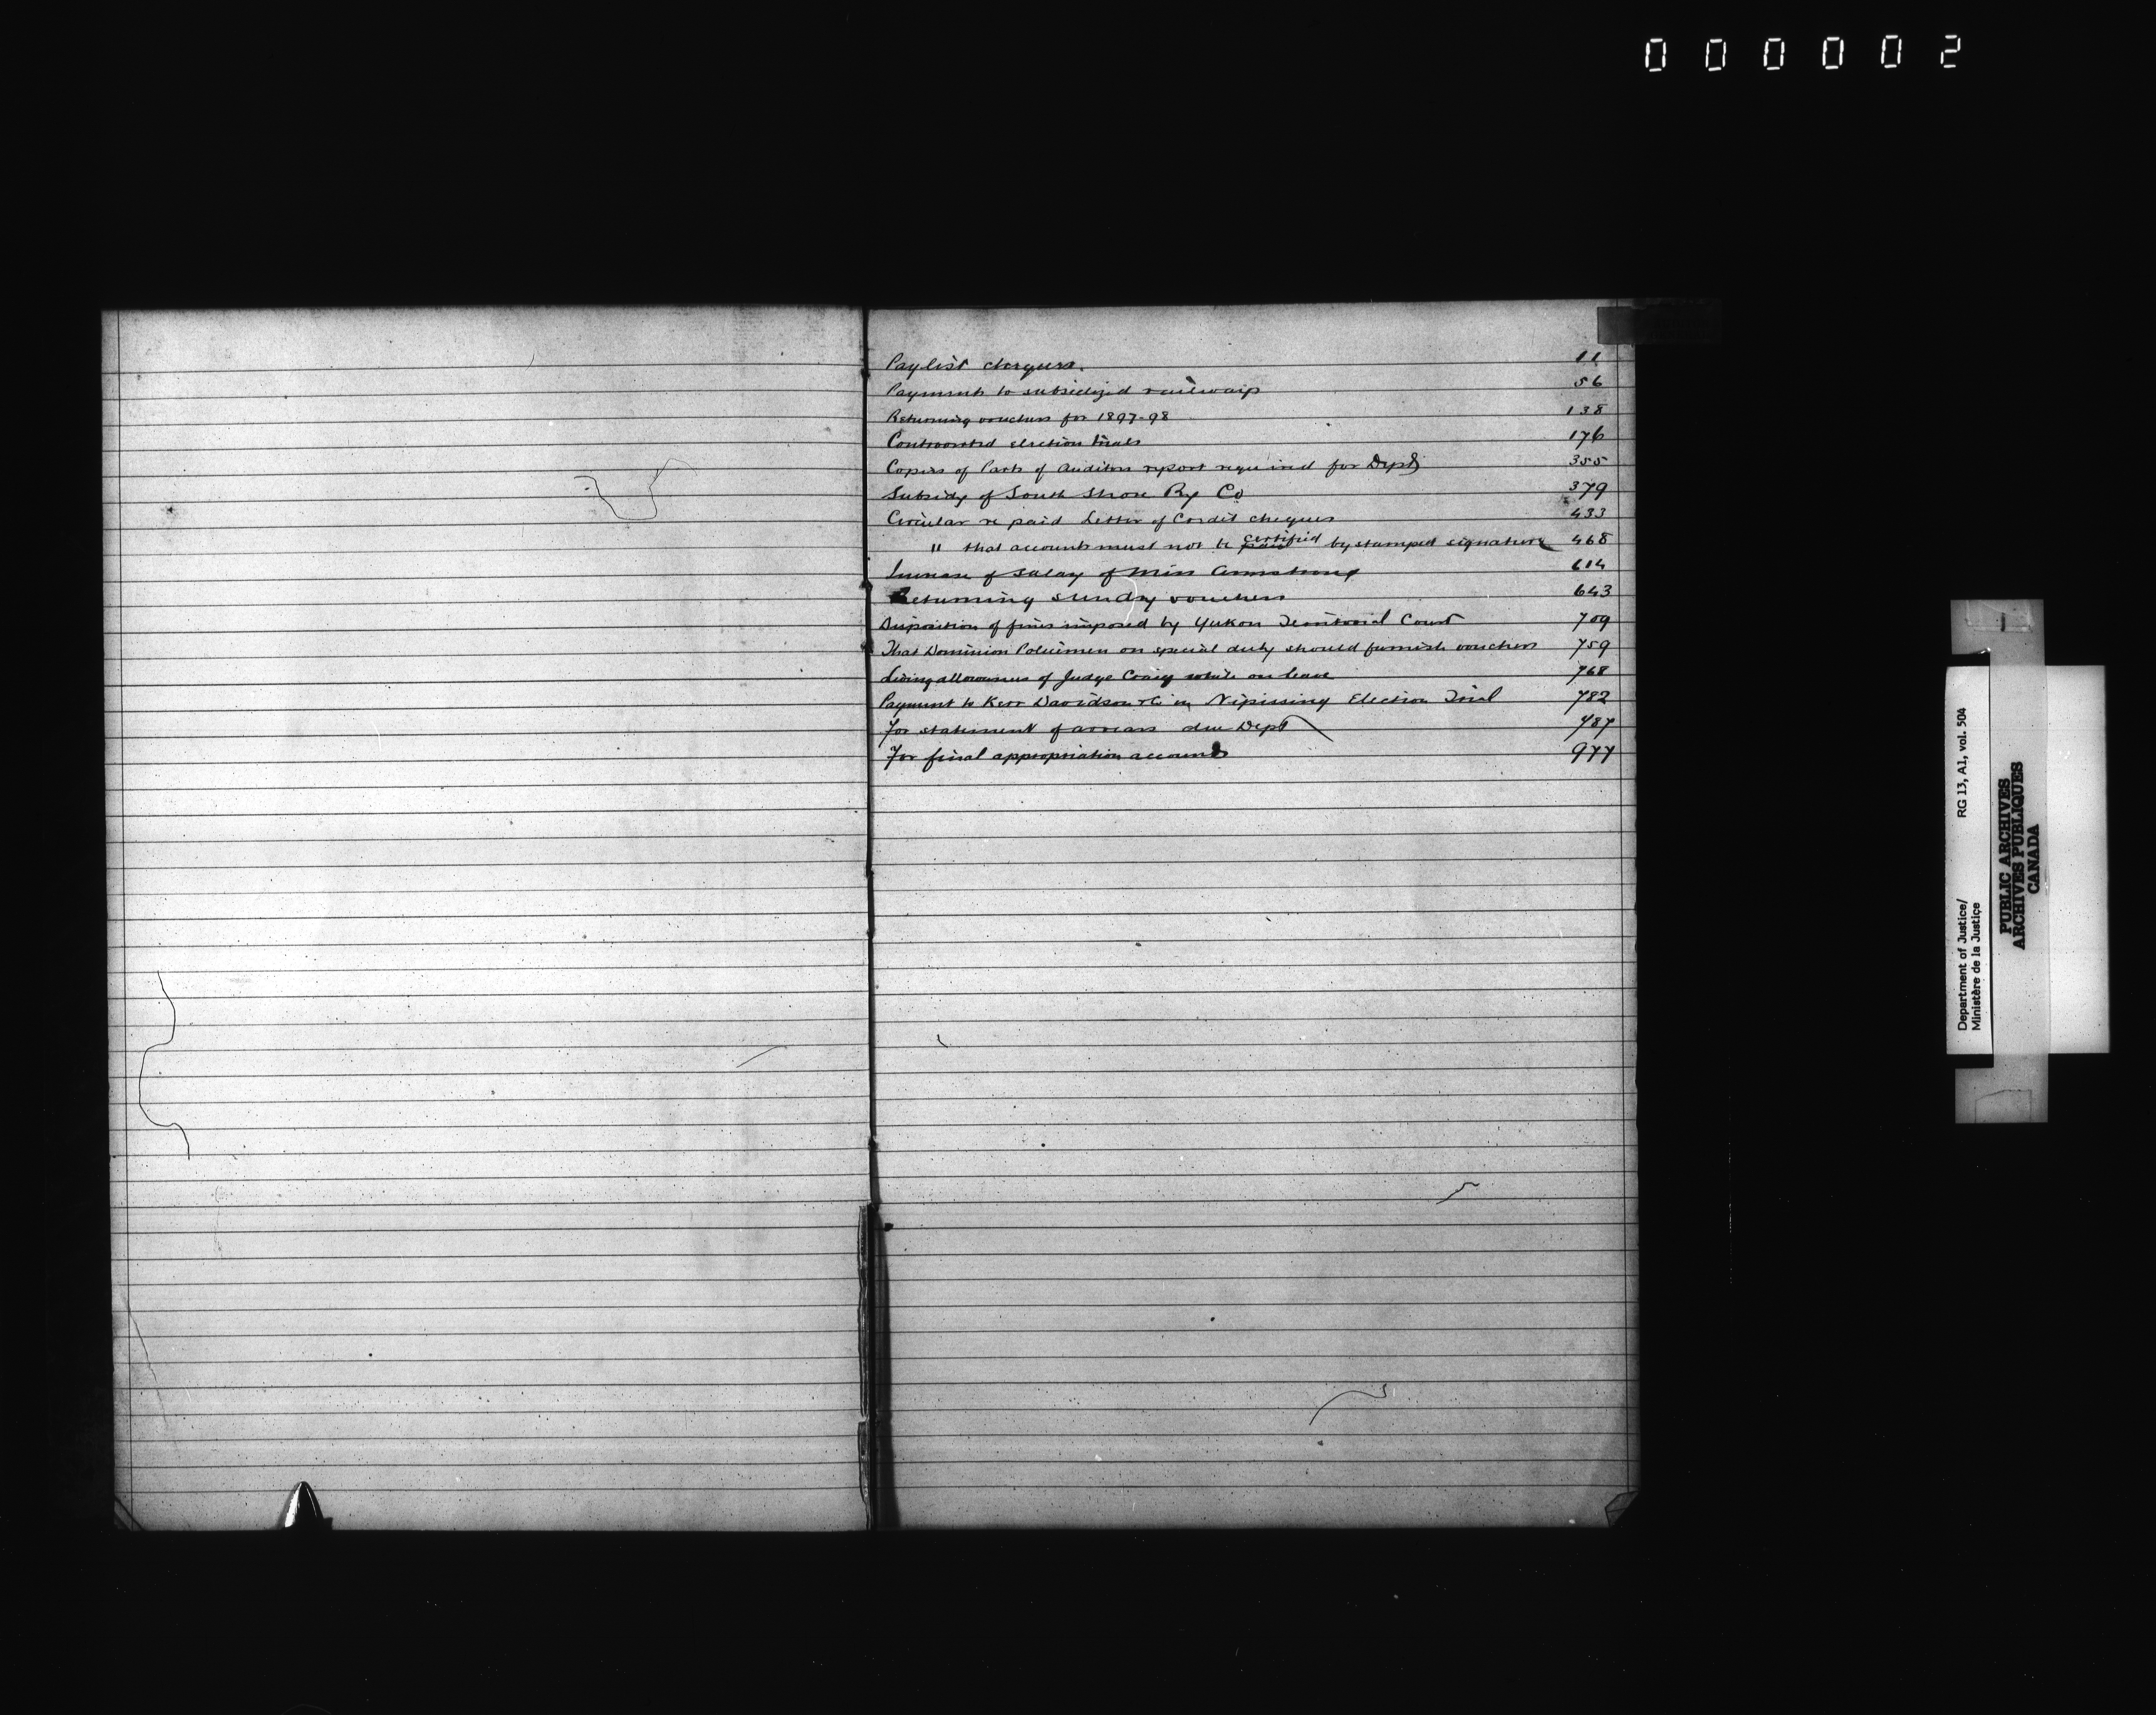 000002
Paylist cheques. 11
Payments to subsidized railways 56
Returning vouchers for 1897-98 138
Controverted election trials 176
Copies of Parts of Auditors report required for Dept 355
Subsidy of South Shore Ry Co 379
Circular re paid Letter of Credit cheques 433
" that accounts must not be paid certified by stamped signature 468
Increase of salary of Miss Armstrong 614
Returning sundry vouchers 643
Disposition of fines imposed by Yukon Territorial Court 709
That Dominion Policemen on special duty should furnish vouchers 759
Living allowances of Judge Craig while on leave 768
Payment to Kerr Davidson &c in Nipissing Election Trial 782
For statement of arrears due Dept 787
For final appropriation accounts 977
Department of Justice/ RG 13, A1, vol. 504
Ministère de la Justice
PUBLIC ARCHIVES
ARCHIVES PUBLIQUES
CANADA